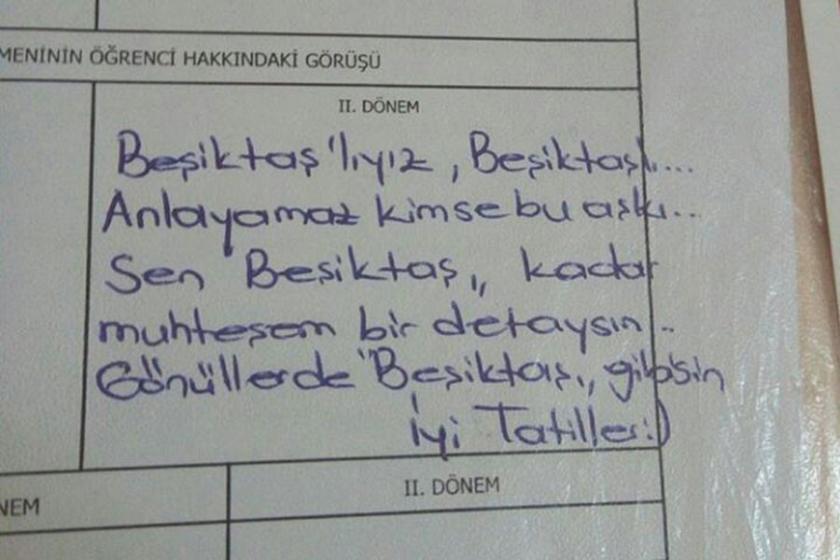 MENİNİN ÖĞRENCİ HAKKINDAKİ GÖRÜŞÜ
II. DÖNEM
Beşiktaş'lıyız, Beşiktaşlı...
Anlayamaz kimse bu aşkı...
Sen "Beşiktaş,, kadar
muhteşem bir detaysın...
Gönüllerde "Beşiktaş,, gibisin
İyi Tatiller:)
NEM
II. DÖNEM